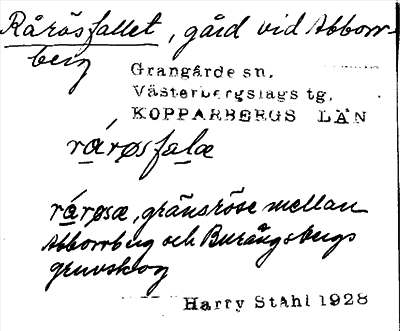 Råråsfallet, gård vid Abborr-
berg
Grangärde sn.
Västerbergslags tg.
KOPPARBERGS LÄN
rárøsfalæ
rárøsæ, gränsröse mellan
Abborrberg och Burängsbergs
gruvskog
Harry Ståhl 1928